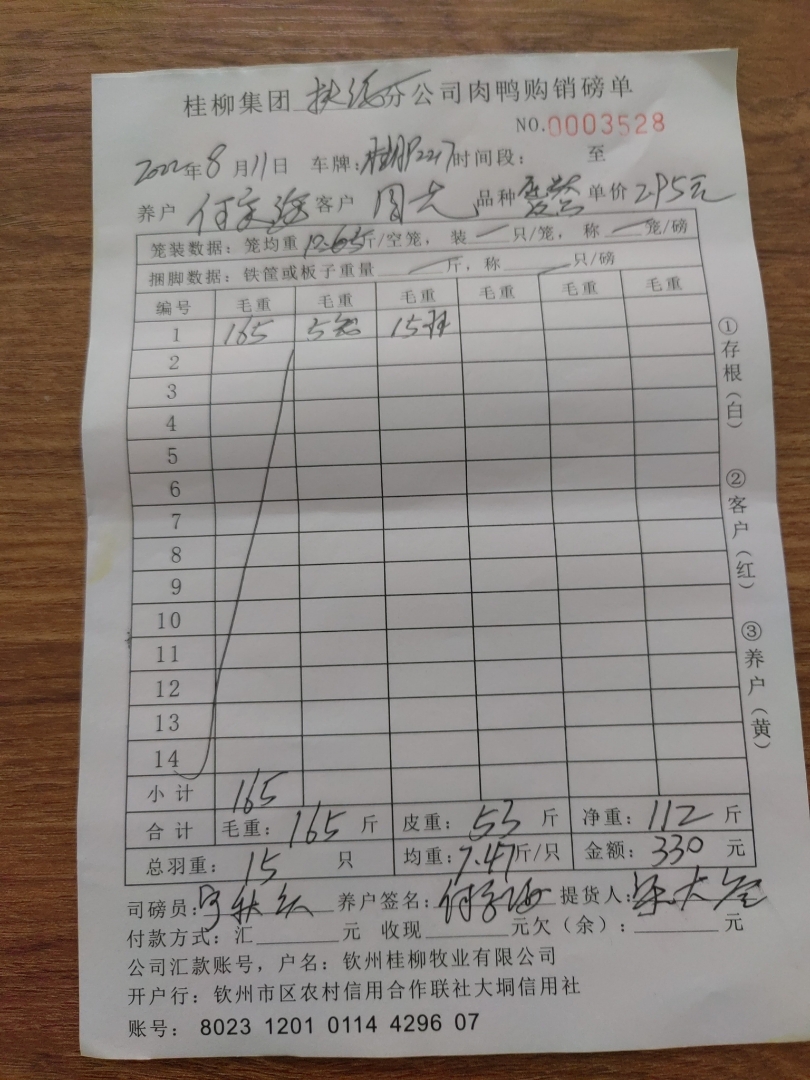 桂柳集团 分公司肉鸭购销磅单
NO.0003528
2022年8月11日 车牌: 时间段: 至
养户 客户 周 品种 单价 2.95元
笼装数据:笼均重 斤/空笼,装 只/笼,称 笼/磅
捆脚数据:铁筐或板子重量 斤,称 只/磅
编号 毛重 毛重 毛重 毛重 毛重 毛重
1 165 5 15羽
2
3
4
5
6
7
8
9
10
11
12
13
14
小计 165
合计 毛重:165斤 皮重:53斤 净重:112斤
总羽重:15 只 均重:7.47斤/只 金额:330元
司磅员: 养户签名: 提货人:
付款方式:汇 元 收现 元欠(余): 元
公司汇款账号,户名:钦州桂柳牧业有限公司
开户行:钦州市区农村信用合作联社大垌信用社
账号: 8023 1201 0114 4296 07
①存根(白)
②客户(红)
③养户(黄)